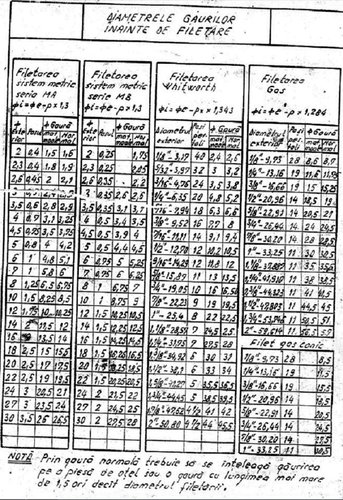 DIAMETRELE GAURILOR
INAINTE DE FILETARE
Filetarea
sistem metric
seria MA
φi=φe-p×1,3
φ Exterior Pasul φ Gaură
maximă normală
2 0,4 1,5 1,6
2,3 0,4 1,8 1,9
2,6 0,45 2 2,1
3,5 0,6 2,8 2,9
4 0,7 3,1 3,25
4,5 0,75 3,5 3,75
5 0,8 4 4,2
6 1 4,8 5,1
7 1 5,8 6
8 1,25 6,5 6,75
10 1,5 8,25 8,5
12 1,75 10 10,25
14 2 11,5 12
16 2 13,5 14
18 2,5 15 15,5
20 2,5 17 17,5
22 2,5 19 19,5
24 3 20,5 21
27 3 23,5 24
30 3,5 26 26,5
Filetarea
sistem metric
seria MB
φi=φe-p×1,3
φ Exterior Pasul φ Gaură
2 0,25 1,75
2,3 0,25
2,6 0,35 2,2
3 0,35 2,6
3,5 0,35 3,1
4 0,5 3,5
4,5 0,5 3,9 4
5 0,5 4,4 4,5
6 0,75 5 5,25
7 0,75 6 6,25
8 1 6,75 7
10 1 8,75 9
12 1,5 10,25 10,5
14 1,5 12,25 12,5
16 1,5 14,25 14,5
18 1,5 16,25 16,5
20 1,5 18,25 18,5
22 1,5 20,25 20,5
24 2 21,5 22
27 2 24,5 25
30 2 27,5 28
Filetarea
Whitworth
φi=φe-p×1,343
Diametrul exterior Pași pe țoli φ Gaură
1/8"-3,17 40 2,4 2,6
5/32-3,97 32 3 3,2
3/16"-4,76 24 3,5 3,8
1/4"-6,35 20 4,8 5,2
5/16-7,94 18 6,3 6,6
3/8"-9,52 16 7,7 8
7/16"-11,11 14 9,1 9,4
1/2"-12,70 12 10,2 10,5
9/16-14,29 12 11,8 12
5/8"-15,87 11
3/4"-19,05 10 16 16,50
7/8"-22,23 9 19 19,5
1"-25,4 8 22 22,5
1 1/8"-28,58 7 24,5 25
1 1/4"-31,75 7 27,5 28
1 3/8"-34,92 6 30 31
1 1/2"-38,1 6 33 34
1 5/8"-41,27 5 35,5 36,5
1 3/4"-44,45 5 38,5 39,5
1 7/8"-47,62 4 1/2 41 42
2"-50,80 4 1/2 44 45,5
Filetarea
Gas
φi=φe-p×1,284
Diametrul exterior Pași pe țoli φ Gaură
1/8"-9,73 28 8,6 8,7
1/4"-13,16 19 11,6 11,75
3/8"-16,66 19 15 15,25
1/2"-20,96 14 18,5 19
5/8"-22,91 14 20,5 21
3/4"-26,44 14 24 24,5
7/8"-30,20 14 28 28,5
1"-33,25 11 30 30,5
1 1/8"-37,90 11 35 35,5
1 1/4"-41,91 11 38 38,5
1 3/8"-44,32 11 41 41,5
1 1/2"-47,80 11 44,5 45
1 3/4"-53,74 11 50,5 51
2"-59,614 11 56,5 57
Filet gaz conic
1/8"-9,73 28 8,5
1/4"-13,16 19 11,5
3/8"-16,66 19
1/2"-20,96 14 18,5
5/8"-22,91 14 20,5
3/4"-26,44 14
7/8"-30,20 14 27,5
1"-33,25 11
NOTĂ Prin gaură normală trebuie să se înțeleagă găurirea
pe o piesă de oțel sau o gaură cu lungimea mai mare
de 1,5 ori decît diametrul filetării.